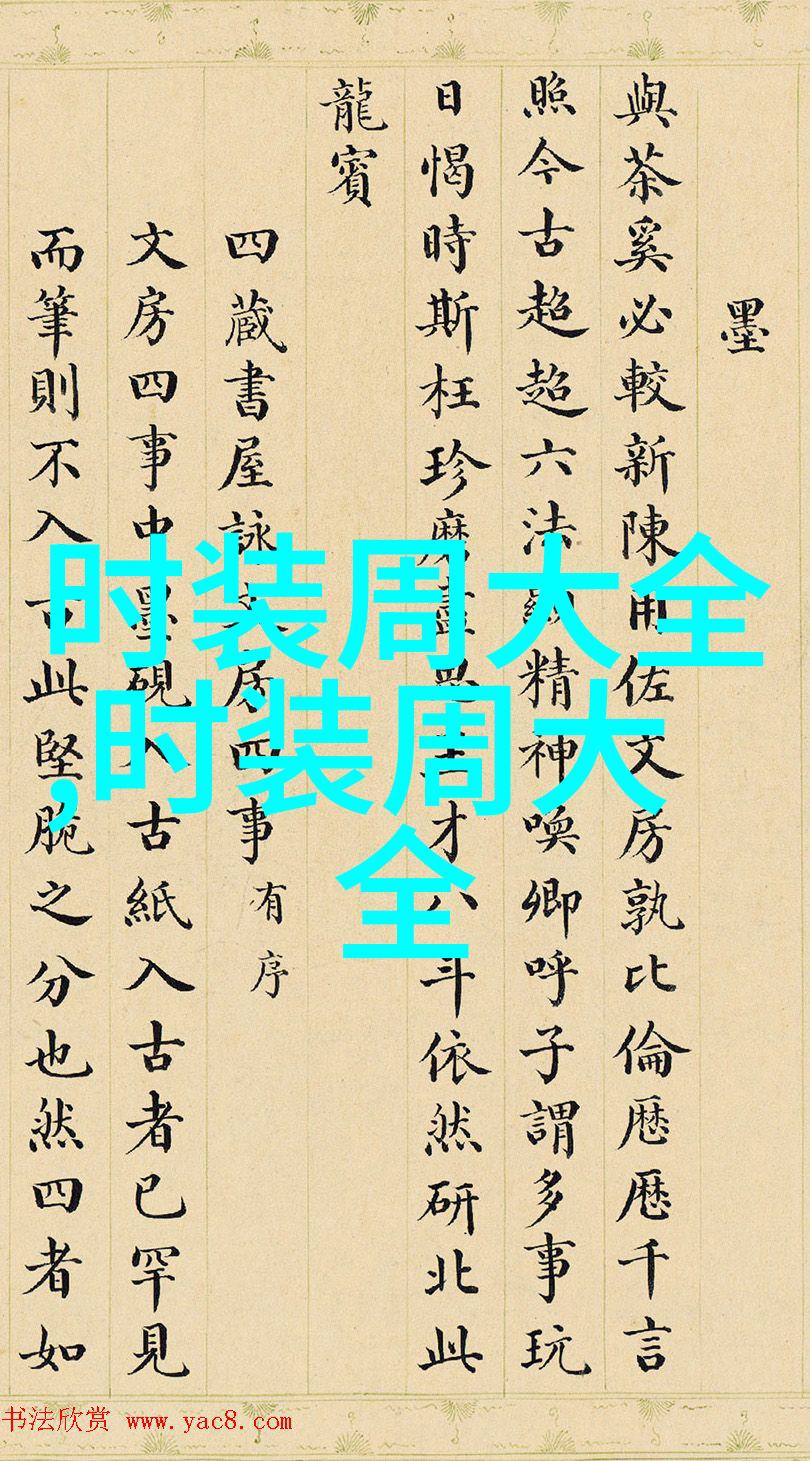 墨
與茶奚必較新陳用佐文房孰比倫歷歷千言
照今古超超六法精神喚卿呼子謂多事玩
日愒時斯枉珍磨才八斗依然研北此
龍賓
四蔵書屋詠文房四事有序
文房四事中墨硯入古紙入古者已罕見
而筆則不入古此堅脆之分也然四者如
时装周大全
,时装周大
全
书法欣赏 www.yac8.com